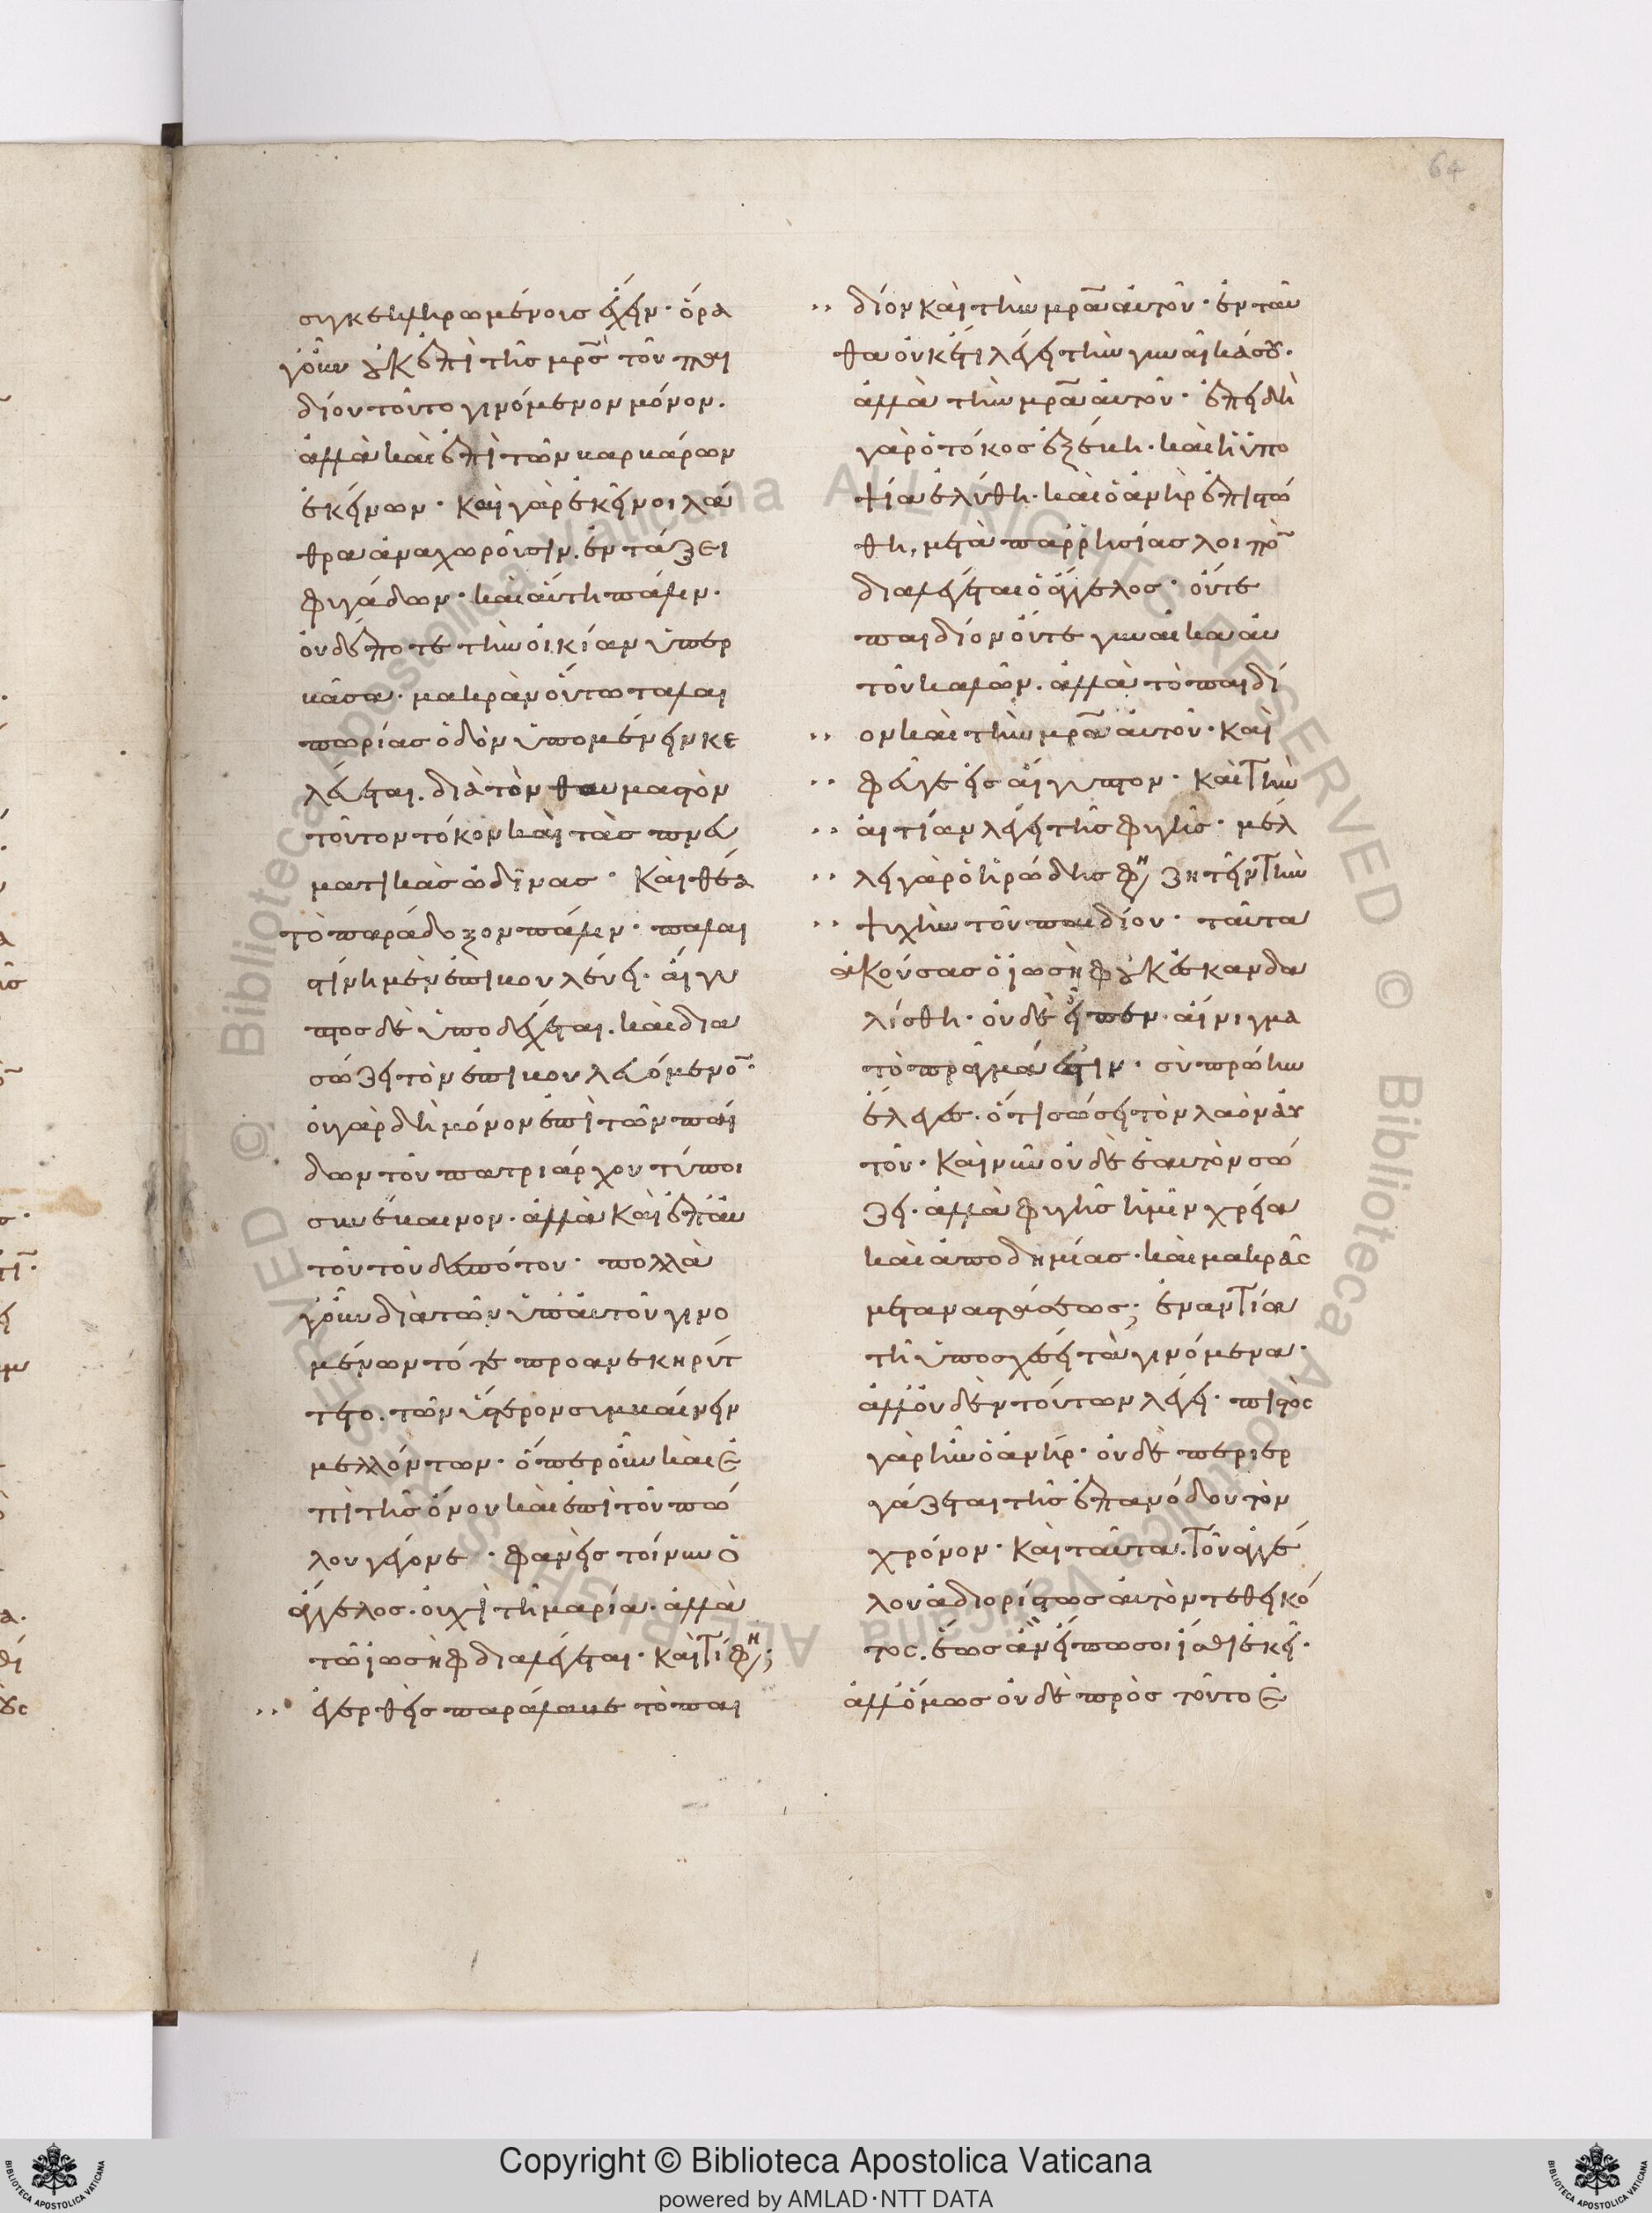 64
συγκεκληρωμένοις ἔχειν· ὅρα
γοῦν οὐκ ἐπὶ τῆς μρς τοῦ παι
δίου τοῦτο γινόμενον μόνον.
ἀλλὰ καὶ ἐπὶ τῶν βαρβάρων
ἐκείνων· καὶ γὰρ ἐκεῖνοι λά
θρα ἀναχωροῦσιν. ἐν τάξει
φυγάδων· καὶ αὕτη πάλιν.
οὐδέποτε τὴν οἰκίαν ὑπερ
βᾶσα· μακρὰν οὕτω ταλαι
πωρίας ὁδὸν ὑπομένειν κε
λεύεται. διὰ τὸν θαυμαστὸν
τοῦτον τόκον καὶ τὰς πνευ
ματικὰς ὠδῖνας· Καὶ θέα
τὸ παράδοξον πάλιν· παλαι
στίνη μὲν ἐπιβουλεύει. αἴγυ
πτος δὲ ὑποδέχεται. καὶ δια
σώζει τὸν ἐπιβουλευόμενο·
οὐ γὰρ δὴ μόνον ἐπὶ τῶν παί
δων τοῦ πατριάρχου τύποι
συνέβαινον. ἀλλὰ καὶ ἐπ' αυ
τοῦ τοῦ δεσπότου· πολλὰ
γοῦν διὰ τῶν ὑπ' αὐτοῦ γινο
μένων τότε προανεκηρύτ
τετο. τῶν ὕστερον συμβαίνειν
μελλόντων· ὅπερ οὖν καὶ ἐ
πὶ τῆς ὄνου καὶ ἐπὶ τοῦ πώ
λου γέγονε· φανεὶς τοίνυν ὁ
ἄγγελος. οὐχὶ τῇ μαρία. ἀλλὰ
τῶ ἰωσὴφ διαλέγεται· Καὶ τί φη;
ἐγερθεὶς παράλαβε τὸ παι
δίον καὶ τὴν μρα αὐτοῦ· ἐνταῦ
θα οὐκέτι λέγει τὴν γυναῖκά σου.
ἀλλὰ τὴν μρα αὐτοῦ· ἐπειδὴ
γὰρ ὁ τόκος ἐξέβη. καὶ ἡ ὑπο
ψία ἐλύθη. καὶ ὁ ἀνὴρ ἐπιστώ
θη, μετὰ παρρησίας λοιπο
διαλέγεται ὁ ἄγγελος· οὔτε
παιδίον οὔτε γυναῖκα αυ
τοῦ καλῶν. ἀλλὰ τὸ παιδί
ον καὶ τὴν μρα αὐτοῦ· Καὶ
φεῦγε εἰς αἴγυπτον· Καὶ τὴν
αἰτίαν λέγει τῆς φυγῆς· μέλ
λει γὰρ ὁ ἡρώδης φη ζητεῖν τὴν
ψυχὴν τοῦ παιδίου· ταῦτα
ἀκούσας ὁ ἰωσὴφ οὐκ ἐσκανδα
λίσθη. οὐδὲ εἶπεν. αἴνιγμα
τὸ πρᾶγμά ἐστιν· σὺ πρώην
ἔλεγες. ὅτι σώσει τὸν λαὸν αὐ
τοῦ· Καὶ νῦν οὐδὲ ἑαυτὸν σώ
ζει. ἀλλὰ φυγῆς ἡμῖν χρεία
καὶ ἀποδημίας. καὶ μακρᾶς
μεταναστάσεως; ἐναντία
τῆ ὑποσχέσει τὰ γινόμενα·
ἀλλ' οὐδὲν τούτων λέγει· πιστὸς
γὰρ ἦν ὁ ἀνήρ· οὐδὲ περιερ
γάζεται τῆς ἐπανόδου τὸν
χρόνον· Καὶ ταῦτα. τοῦ ἀγγέ
λου ἀδιορίστως αὐτὸν τεθεικό
τος. ἕως ἂν εἴπω σοι ἴσθι ἐκεῖ.
ἀλλ' ὅμως οὐδὲ πρὸς τοῦτο ἐ
Copyright © Biblioteca Apostolica Vaticana
powered by AMLAD·NTT DATA